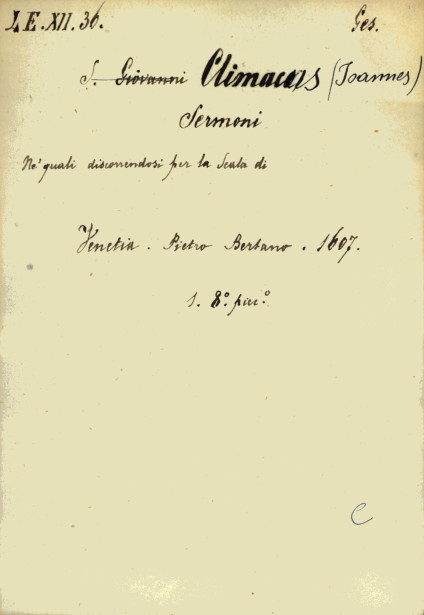 LE.XII.36. Ges.
S. Giovanni Climacus (Ioannes)
Sermoni
Ne' quali discorrendosi per la Scala di
Venetia. Pietro Bertano. 1607.
1. 8.° picc.°
C